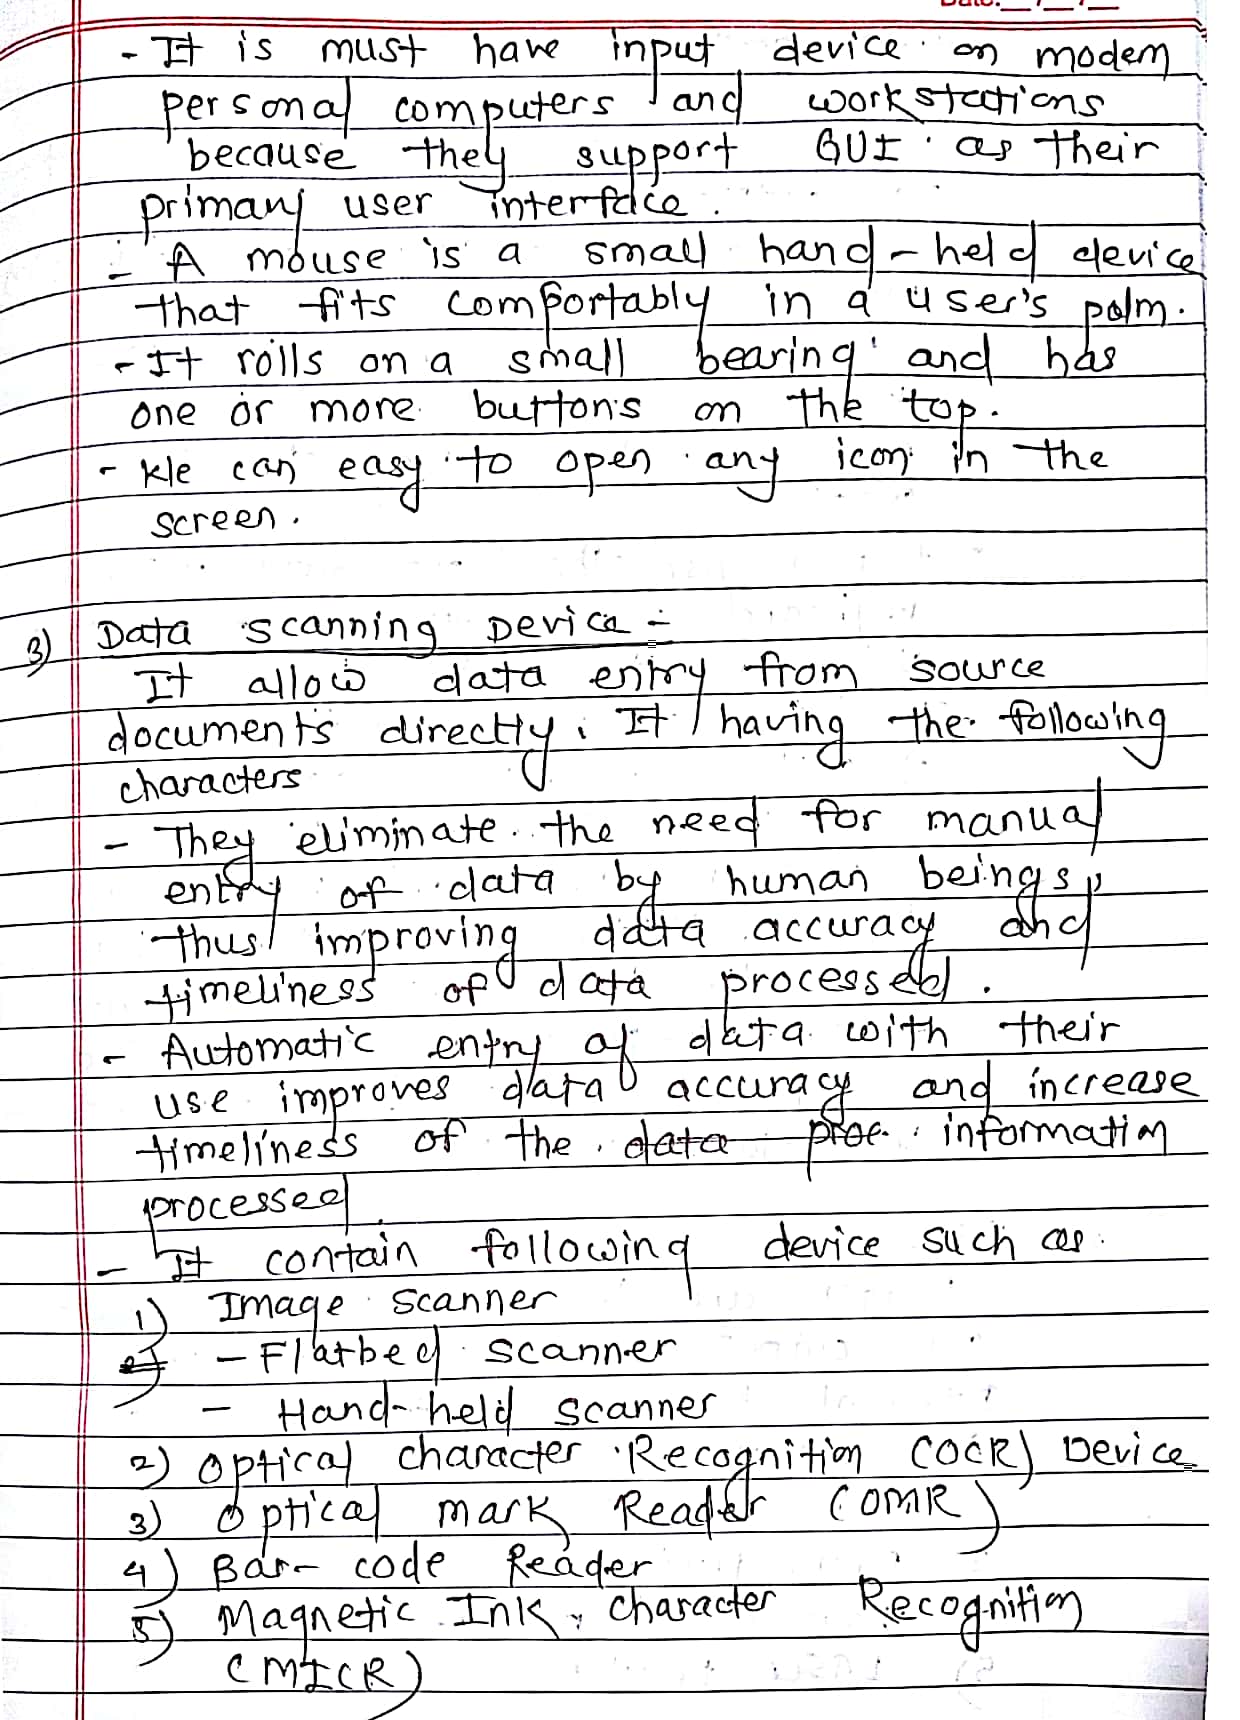 - It is must have input device on modern
personal computers and workstations
because they support GUI as their
primary user interface.
- A mouse is a small hand-held device
that fits comfortably in a user's palm.
- It rolls on a small bearing and has
one or more buttons on the top.
- We can easy to open any icon in the
screen.
3) Data scanning Device -
It allow data entry from source
documents directly. It having the following
characters
- They eliminate the need for manual
entry of data by human beings,
thus improving data accuracy and
timeliness of data processed.
- Automatic entry of data with their
use improves data accuracy and increase
timeliness of the data proc. information
processed
- It contain following device such as.
1) Image scanner
- Flatbed scanner
- Hand-held scanner
2) Optical character Recognition (OCR) Device
3) Optical mark Reader (OMR)
4) Bar-code Reader
5) Magnetic Ink, character Recognition
(MICR)